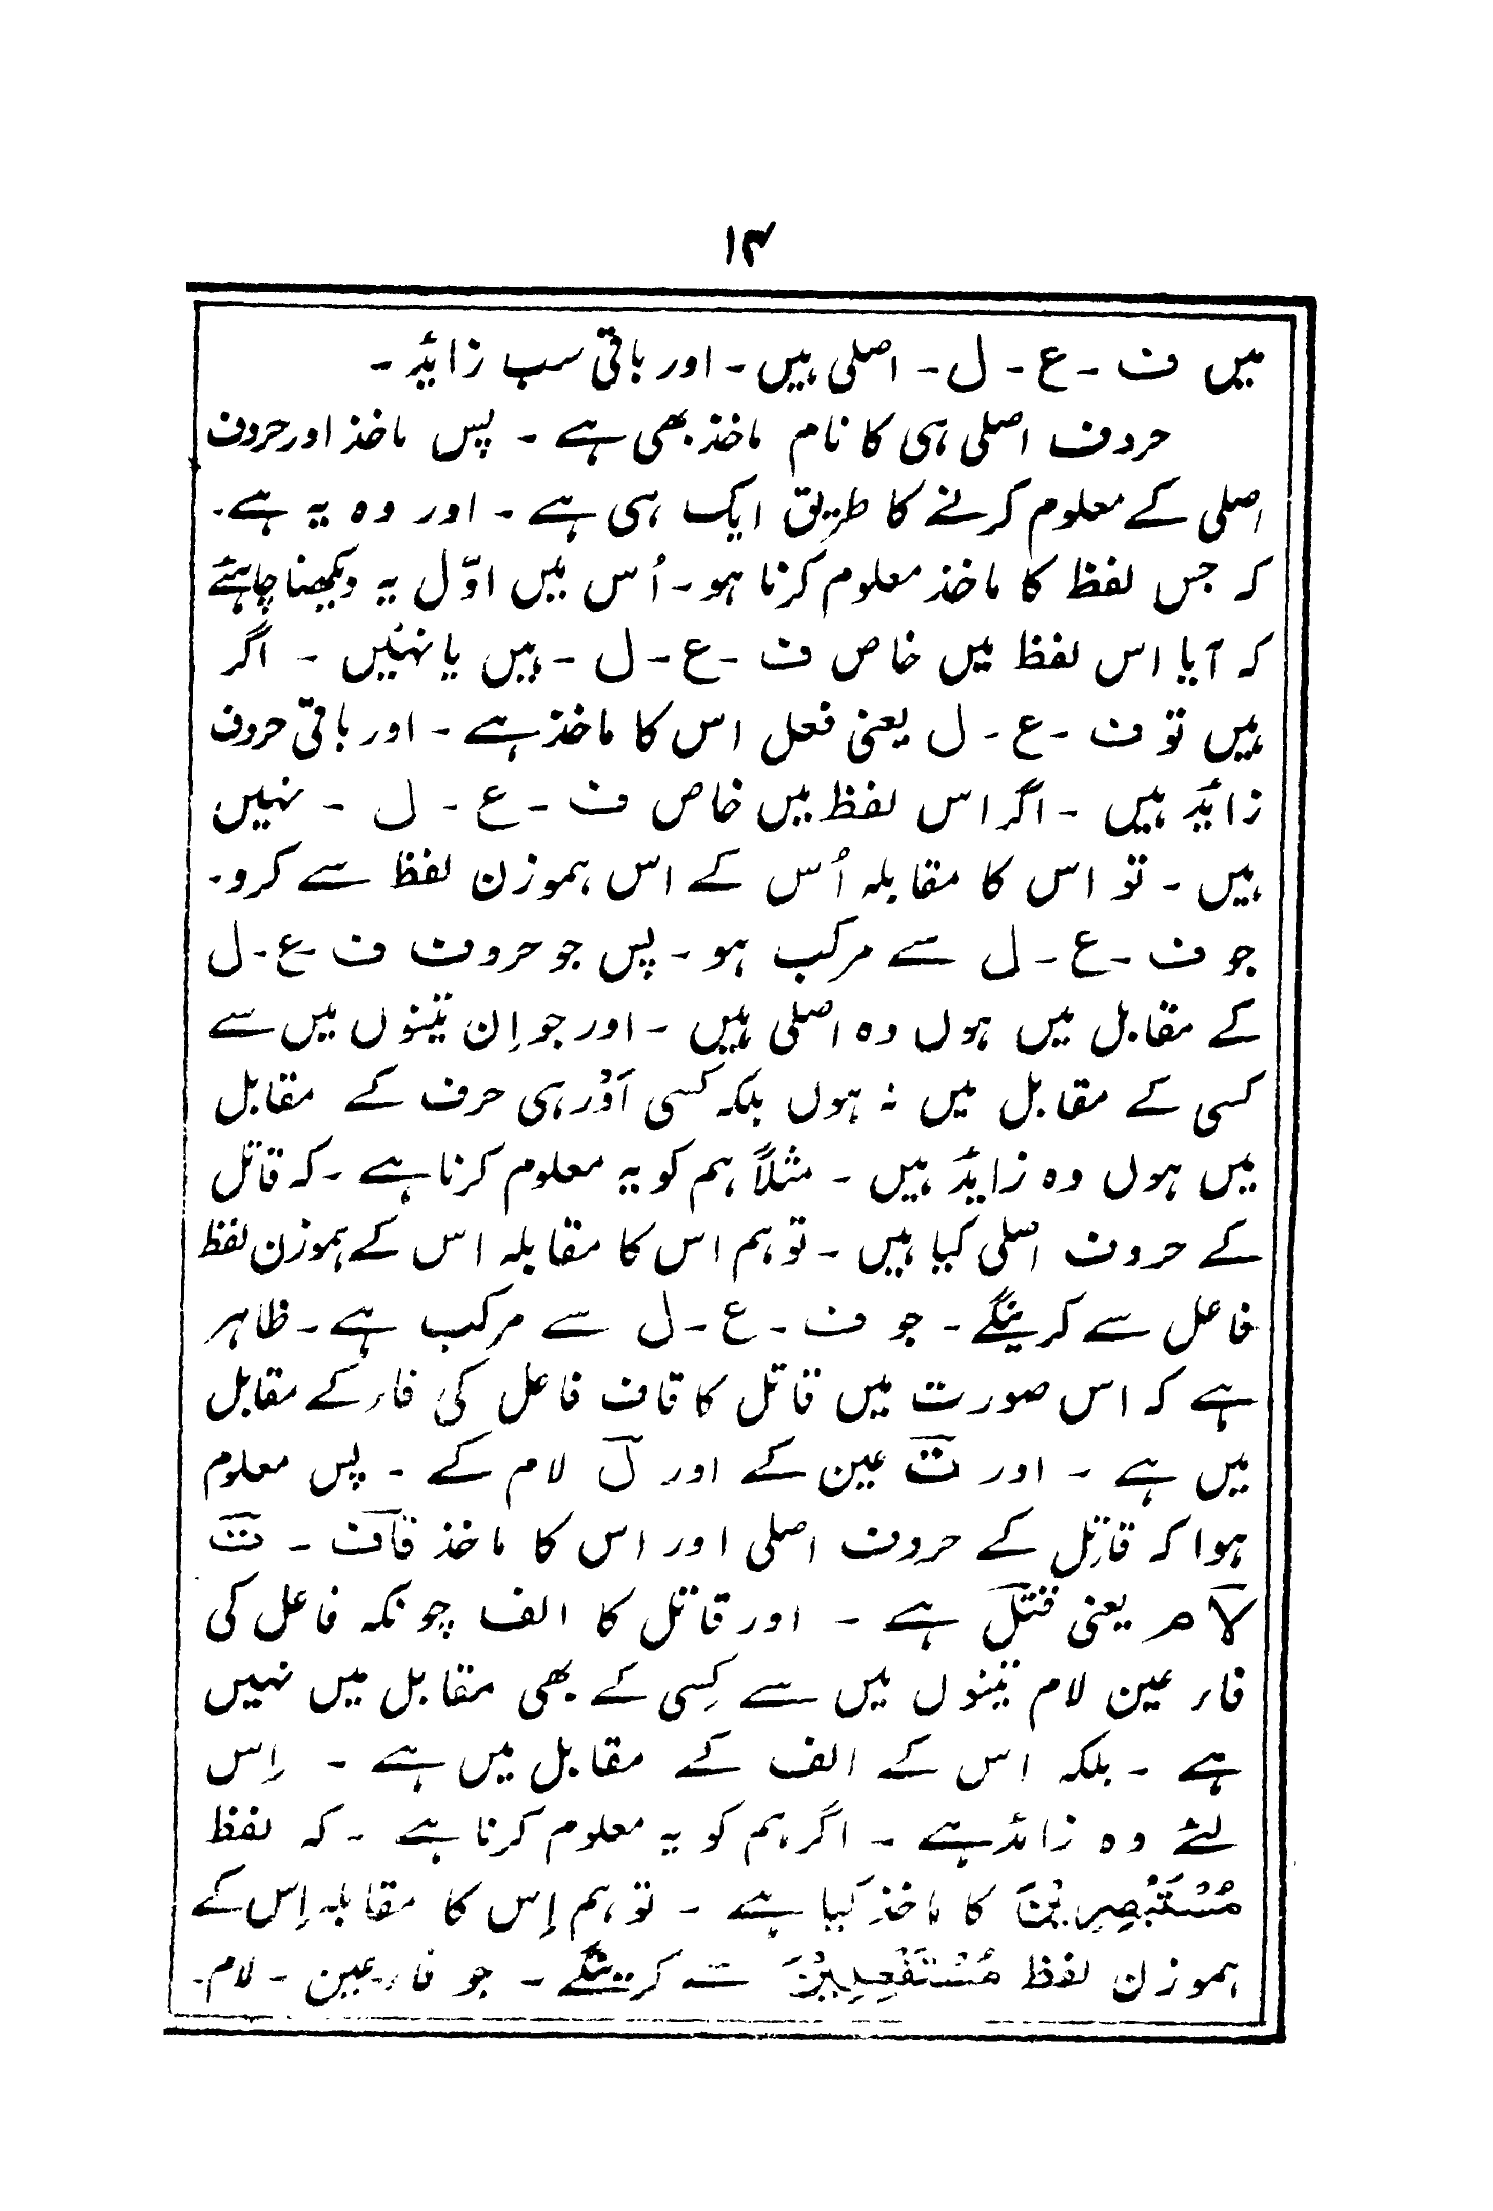 ۱۴
میں ف ۔ ع ۔ ل ۔ اصلی ہیں ۔ اور باقی سب زایٔد ۔
حروف اصلی ہی کا نام ماخذ بھی ہے ۔ پس ماخذ اور حروف
اصلی کے معلوم کرنے کا طریق ایک ہی ہے ۔ اور وہ یہ ہے ۔
کہ جس لفظ کا ماخذ معلوم کرنا ہو ۔ اُس میں اوّل یہ دیکھنا چاہئے
کہ آیا اس لفظ میں خاص ف ۔ ع ۔ ل ۔ ہیں یا نہیں ۔ اگر
ہیں تو ف ۔ ع ۔ ل یعنی فعل اس کا ماخذ ہے ۔ اور باقی حروف
زایٔد ہیں ۔ اگر اس لفظ میں خاص ف ۔ ع ۔ ل ۔ نہیں
ہیں ۔ تو اس کا مقابلہ اُس کے اس ہموزن لفظ سے کرو ۔
جو ف ۔ ع ۔ ل سے مرکب ہو ۔ پس جو حروف ف ۔ ع ۔ ل
کے مقابل میں ہوں وہ اصلی ہیں ۔ اور جو اِن تینوں میں سے
کسی کے مقابل میں نہ ہوں بلکہ کسی اَوْر ہی حرف کے مقابل
میں ہوں وہ زایٔد ہیں ۔ مثلاً ہم کو یہ معلوم کرنا ہے ۔ کہ قاتل
کے حروف اصلی کیا ہیں ۔ تو ہم اس کا مقابلہ اس کے ہموزن لفظ
فاعل سے کرینگے ۔ جو ف ۔ ع ۔ ل سے مرکب ہے ۔ ظاہر
ہے کہ اس صورت میں قاتل کا قاف فاعل کی فاء کے مقابل
میں ہے ۔ اور ت عین کے اور ل لام کے ۔ پس معلوم
ہوا کہ قاتِل کے حروف اصلی اور اس کا ماخذ قاف ۔ ت
لام یعنی قتل ہے ۔ اور قاتل کا الف چونکہ فاعل کی
فاء عین لام تینوں میں سے کِسی کے بھی مقابل میں نہیں
ہے ۔ بلکہ اس کے الف کے مقابل میں ہے ۔ اِس
لئے وہ زائد ہے ۔ اگر ہم کو یہ معلوم کرنا ہے ۔ کہ لفظ
مُسْتَبْصِرِیْنَ کا ماخذ کیا ہے ۔ تو ہم اِس کا مقابلہ اِس کے
ہموزن لفظ مُسْتَفْعِلِیْنَ سے کرینگے ۔ جو فاء ۔ عین ۔ لام ۔